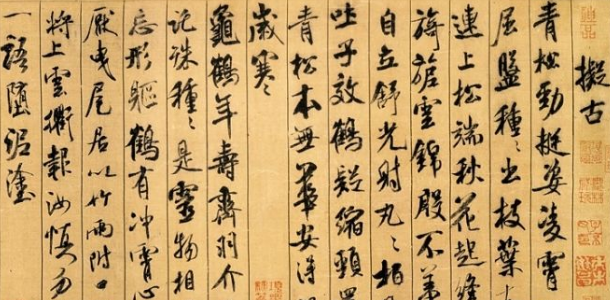 擬古
青松勁挺姿凌霄
屈盤種〻出枝葉
連上松端秋花起絳
旖旎雲錦殷不羞
自立舒光射丸〻柏
吐子效鶴疑縮頸還
青松本無華安得
歲寒〻
龜鶴年壽齊羽介
託殊種〻是靈物相
忘形軀鶴有冲霄心
厭曳尾居以竹兩附口
將上雲衢報汝慎勿
一語墮泥塗